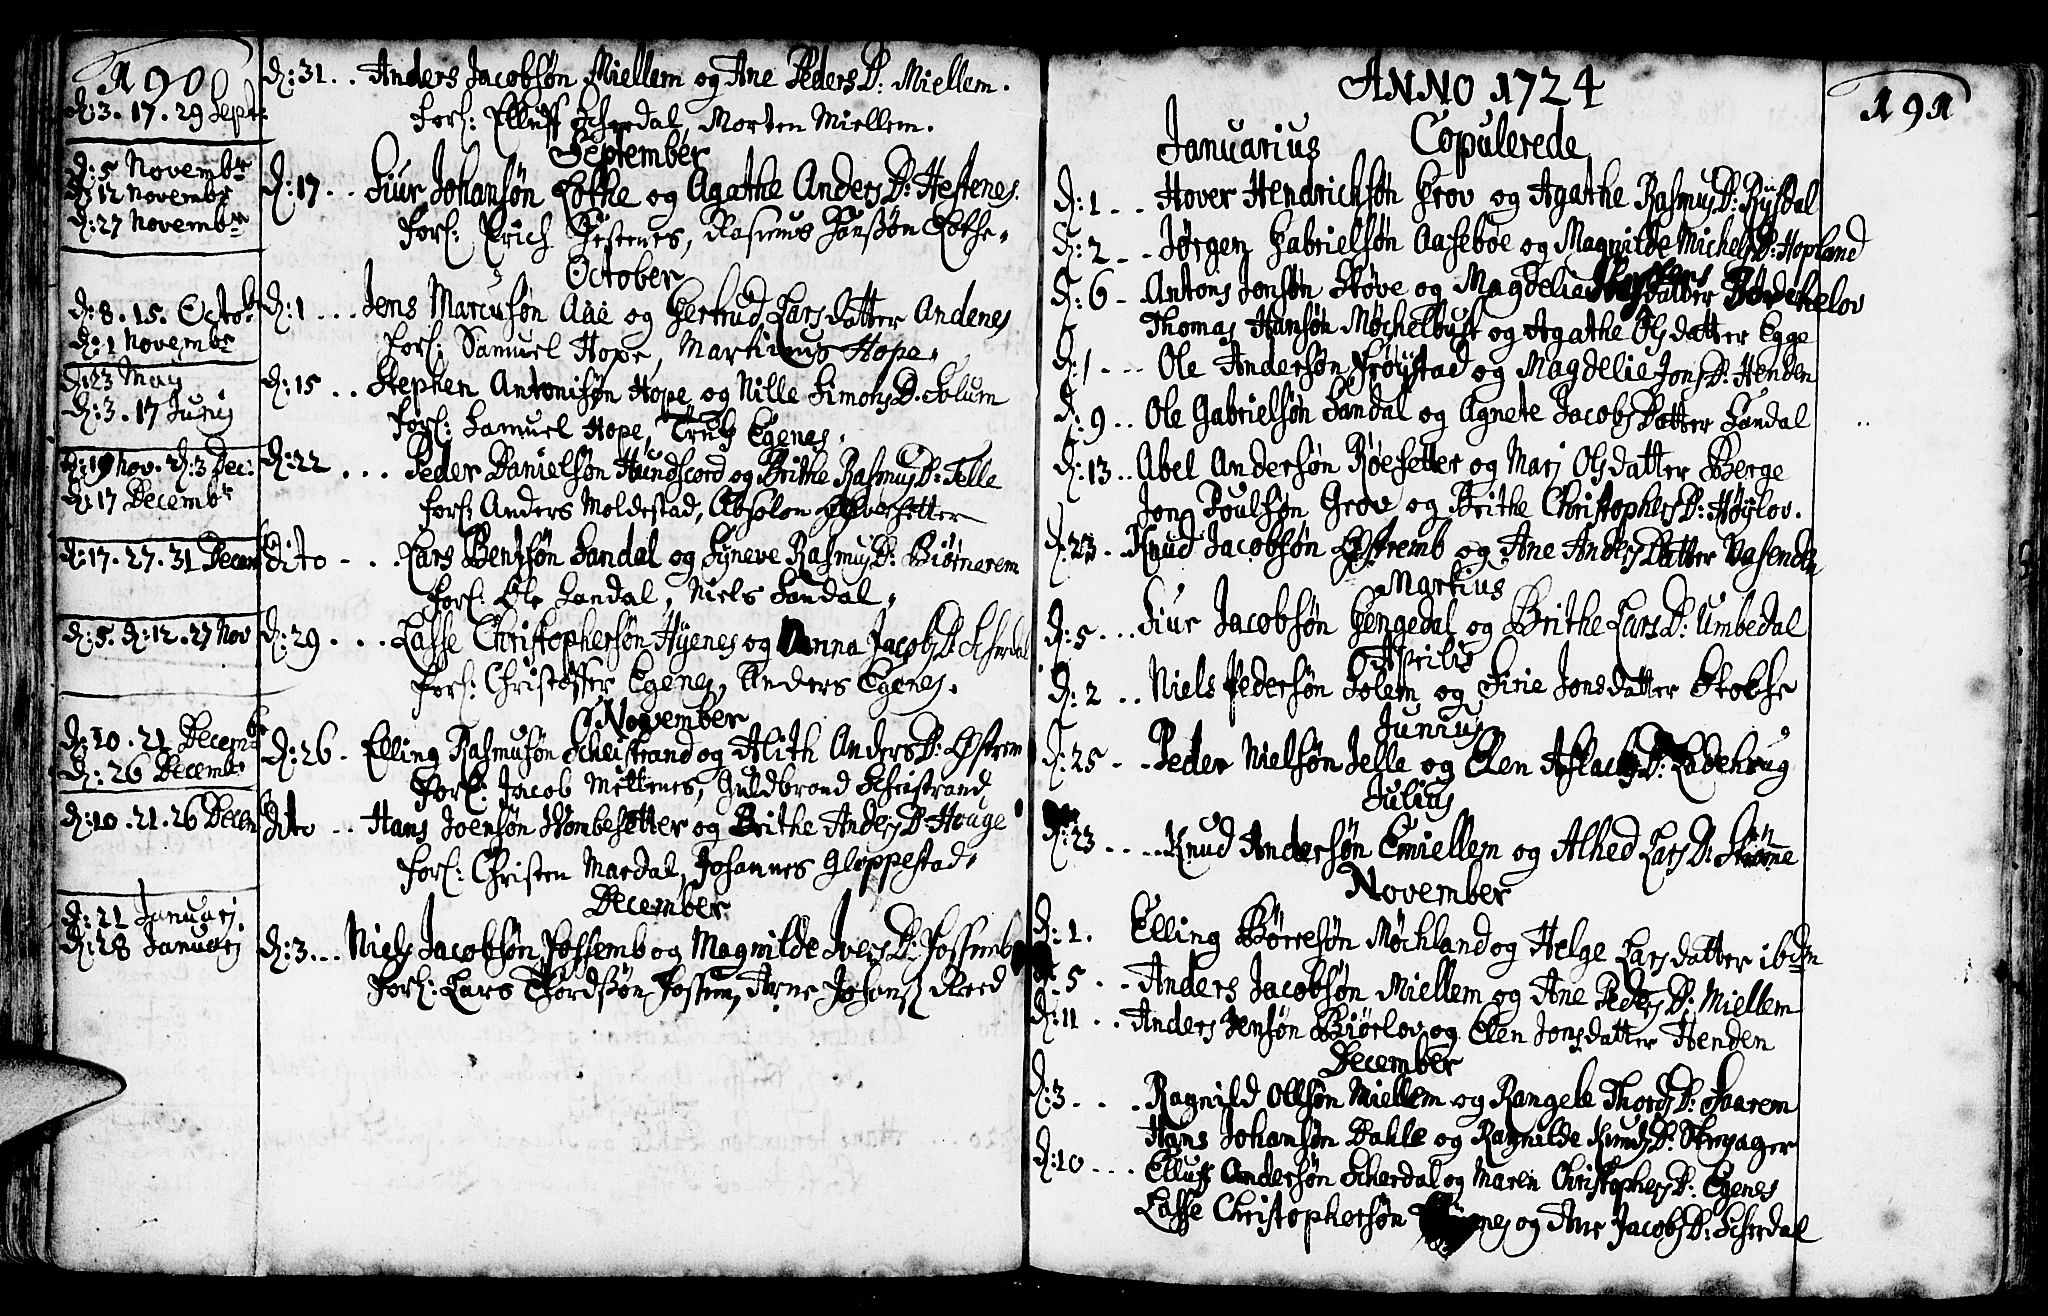 190
d: 3. 17. 29 Sept:
d: 5 Novembr
d: 12 Novembr
d: 27 Novembr
d: 8. 15. Octo:
d: 1 Novembr
d: 23 May
d: 3. 17 Junij
d: 19 Nov. d: 3 Dec:
d: 17 Decembr
d: 17. 27. 31 Decem
d: 5. d: 12. 27 Nov
d: 10. 21 Decembr
d: 26 Decembr
d: 10. 21. 26 Decem
d: 21 Januarj.
d: 28 Januarj
d: 31 . . Anders Jacobsøn Miellem og Ane Peders D: Miellem.
Forl: Elluff Scherdal, Morten Miellem.
September
d: 17 . . Siur Johansøn Lothe og Agathe Anders D: Hestenes.
Forl: Erich Hestenes, Rasmus Hanssøn Lothe.
October
d: 1 . . . Jens Marcusøn Aae og Gertrud Lars datter Andenes
Forl: Samuel Hope, Martinus Hope.
d: 15 . . Stephen Antonisøn Hope og Nille Simons D. Solum
Forl: Samuel Hope, Truls Egenes.
d: 22 . . . Peder Danielsøn Hundscord og Brithe Rasmus D: Telle
Forl: Anders Moldestad, Absolon
Dito - . . Lars Bentsøn Sandal og Syneve Rasmus D: Biørnerem
Forl: Ole Sandal, Niels Sandal.
d: 29 . . . Lasse Christophersøn Hÿenes og Anna Jacobs D: Scherdal
Forl: Christoffer Egenes, Anders Egenes.
November
d: 26 . Elling Rasmusøn Scheistrand og Alith Anders D: Østrem
Forl: Jacob Mettenes, Guldbrand Scheistrand
Dito . . Hans Joensøn Wombesetter og Brithe Anders D: Houge
Forl: Christen Mardal, Johannes Gloppestad.
December
d: 3 . . . Niels Jacobsøn Fossemb og Magnilde Ivers D: Fossemb
Forl: Lars Tfordssøn Fossem, Arne Johans Reed
ANNO 1724
191
Januarius Copulerede
d: 1 . . Hover Hendrichsøn Grov og Agathe Rasmus D: Rÿssdal
d: 2 . . Jørgen Gabrielsøn Aaseboe og Magnilde Michels D: Hopland
d: 6 . Antons Jonsøn Støve og Magdelia datter
Thomas Hansøn Møchelbust og Agathe Ols datter Egge
d: 1 . . . Ole Andersøn Frøÿstad og Magdelie Jons D: Henden
d: 9 . . Ole Gabrielsøn Sandal og Agnete Jacobs Datter Sandal
d: 13 . . Abel Andersøn Røesetter og Marj Ols datter Berge
Jon Poulsøn Grov og Brithe Christophers D: Høÿlov.
d: 23 . Knud Jacobsøn Østremb og Ane Anders Datter Vasenden
Martius
d: 5 . . . Siur Jacobsøn Gengedal og Brithe Lars D: Umbedal
Aprilis
d: 2 . . Niels Pedersøn Solem og Sirie Jonsdatter
Junius
d: 25 . . Peder Nielsøn Telle og Elen Aslachs D: Ladehrug
Julius
d: 23 . . . . Knud Andersøn Emiellem og Alhed Lars D:
November
d: 1. Elling Børresøn Møchland og Helge Lars datter ibdm
d: 5 . . Anders Jacobsøn Miellem og Ane Peders D: Miellem
d: 11 . . Anders Jensøn Biørlov og Elen Jonsdatter Henden
December
d: 3 . . . Ragnild Ollsøn Miellem og Rangele Thords D: Saarem
Hans Johansøn Dahle og Ragnilde Knuds D:
d: 10 . . . Elluff Andersøn Scherdal og Maren Christophers D: Egenes
Lasse Christophersøn og Ane Jacobs D: Scherdal